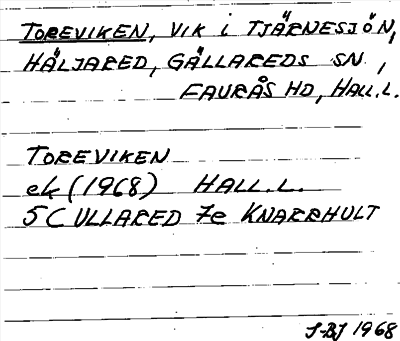 TOREVIKEN, VIK i TJÄRNESJÖN,
HÄLJARED, GÄLLAREDS SN,
FAURÅS HD, HALL.L.
TOREVIKEN
ek (1968) HALL.L.
5C ULLARED 7e KNARRHULT
J-BJ 1968